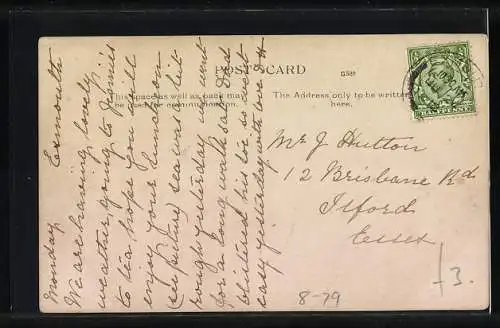 POST CARD
5591
This space as well as back may
be used for communication.
The Address only to be written
here.
Monday Exmouth
We are having lovely
weather, going to
to tea hope you will
enjoy your function
sea was a bit
rough yesterday we went
for a long walk sat. Dad
his tea so went
early yesterday with love D H
Mr J Hutton
12 Brisbane Rd
Ilford
Essex
8-79
3.
HALFPENNY